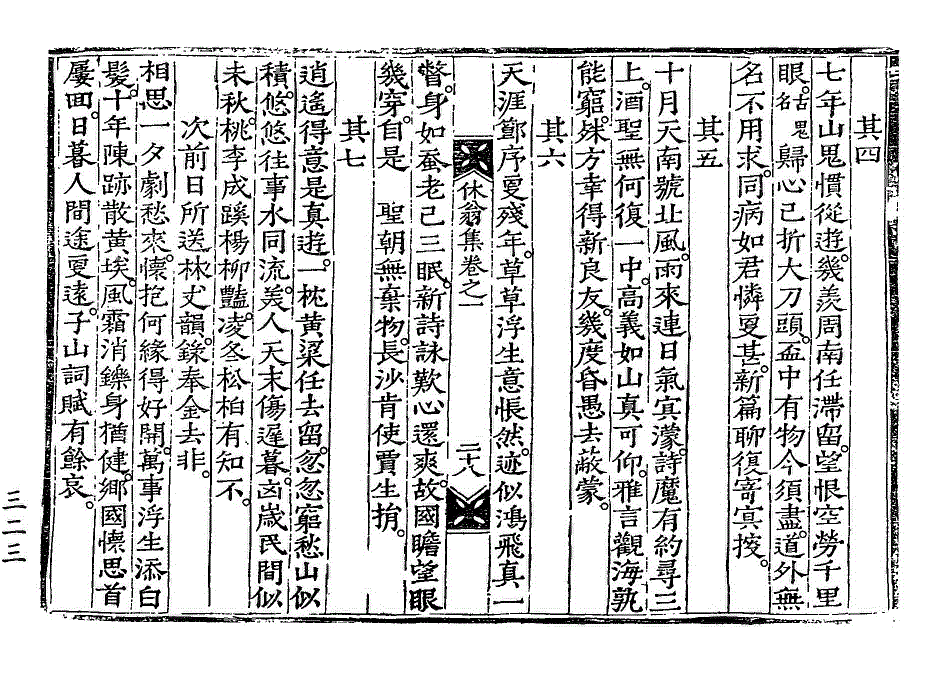 其四
七年山鬼慣從遊。幾羨周南任滯留。望恨空勞千里
眼。鬼詰歸心已折大刀頭。盃中有物今須盡。道外無
名不用求。同病如君憐更甚。新篇聊復寄冥搜。
其五
十月天南號北風。雨來連日氣冥濛。詩魔有約尋三
上。酒聖無何復一中。高義如山眞可仰。雅言觀海孰
能窮。殊方幸得新良友。幾度昏愚去蔽蒙。
其六
天涯節序更殘年。草草浮生意悵然。迹似鴻飛眞一
休翁集卷之一
二十八
瞥。身如蚕老已三眠。新詩詠歎心還爽。故國瞻望眼
幾穿。自是 聖朝無棄物。長沙肯使賈生捐。
其七
逍遙得意是眞遊。一枕黃粱任去留。忽忽窮愁山似
積。悠悠往事水同流。美人天末傷遲暮。凶歲民間似
未秋。桃李成蹊楊柳豔。凌冬松柏有知不。
次前日所送林丈韻。錄奉金去非。
相思一夕劇愁來。懷抱何緣得好開。萬事浮生添白
髮。十年陳跡散黃埃。風霜消鑠身猶健。鄕國懷思首
屢回。日暮人間途更遠。子山詞賦有餘哀。
三二三